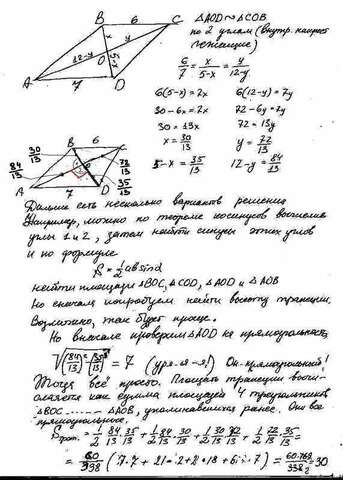 B 6 C
x y
O
12-y 5-x
A 7 D
△AOD ~ △COB
по 2 углам (внутр. накрест
лежащие)
6/7 = x/(5-x) = y/(12-y)
6(5-x)=7x 6(12-y)=7y
30-6x=7x 72-6y=7y
30=13x 72=13y
x=30/13 y=72/13
5-x=35/13 12-y=84/13
30/13 B 6 C
84/13 72/13
A 7 D 35/13
Дальше есть несколько вариантов решения
Например, можно по теореме косинусов вычислить
углы 1 и 2, затем найти синусы этих углов
и по формуле
S=1/2 ab sin α
найти площади △BOC, △COD, △AOD и △AOB
Но сначала попробуем найти высоту трапеции.
Возможно, так будет проще.
Но вначале проверим △AOD на прямоугольность
√((84/13)²+(35/13)²) = 7 (ура-а-а!) Он-прямоугольный!
Тогда всё просто. Площадь трапеции вычи-
сляется как сумма площадей 4 треугольников
△BOC ...... △AOB, упоминавшихся ранее. Они все
прямоугольные.
Sтрап. = 1/2 · 84/13 · 35/13 + 1/2 · 84/13 · 30/13 + 1/2 · 30/13 · 72/13 + 1/2 · 72/13 · 35/13 =
=30